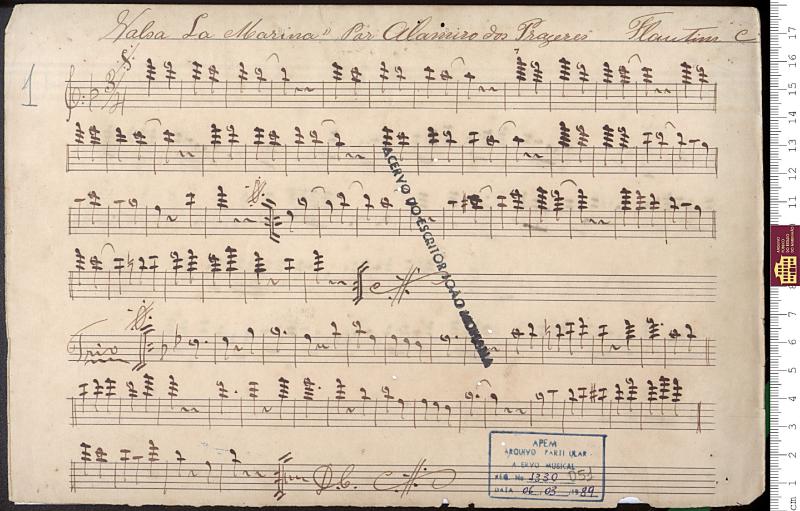 Valsa La Marina" Por Alamiro dos Prazeres Flautim C
1
3/4
7
ACERVO DO ESCRITOR JOÃO MOHANA
Trio
D.C.
APEM
ARQUIVO PARTICULAR
ACERVO MUSICAL
REG. No 1330 051
DATA 06 / 03 / 1989
cm 1 2 3 4 5 6 7 8 9 10 11 12 13 14 15 16 17